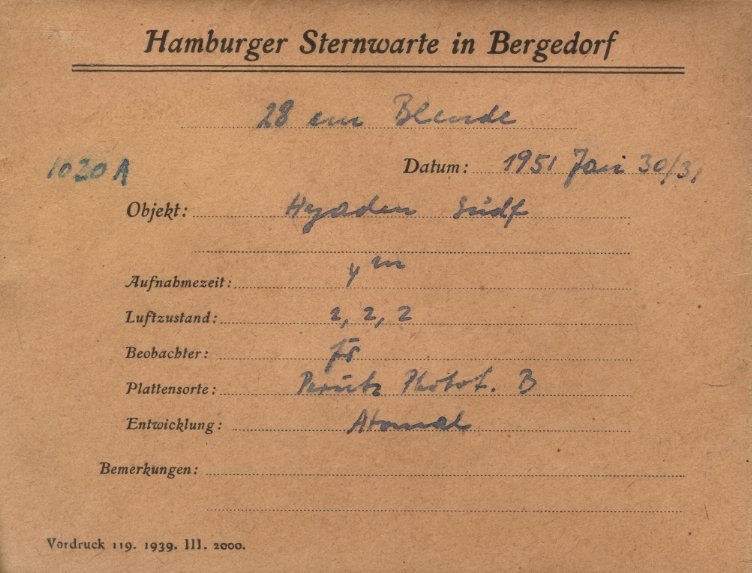 Hamburger Sternwarte in Bergedorf
28 cm Blende
1020A
Datum: 1951 Jan 30/31
Objekt: Hyaden Südf
Aufnahmezeit: 4 m
Luftzustand: 2, 2, 2
Beobachter:
Plattensorte: Perutz Phototh. B
Entwicklung: Atomal
Bemerkungen:
Vordruck 119. 1939. III. 2000.